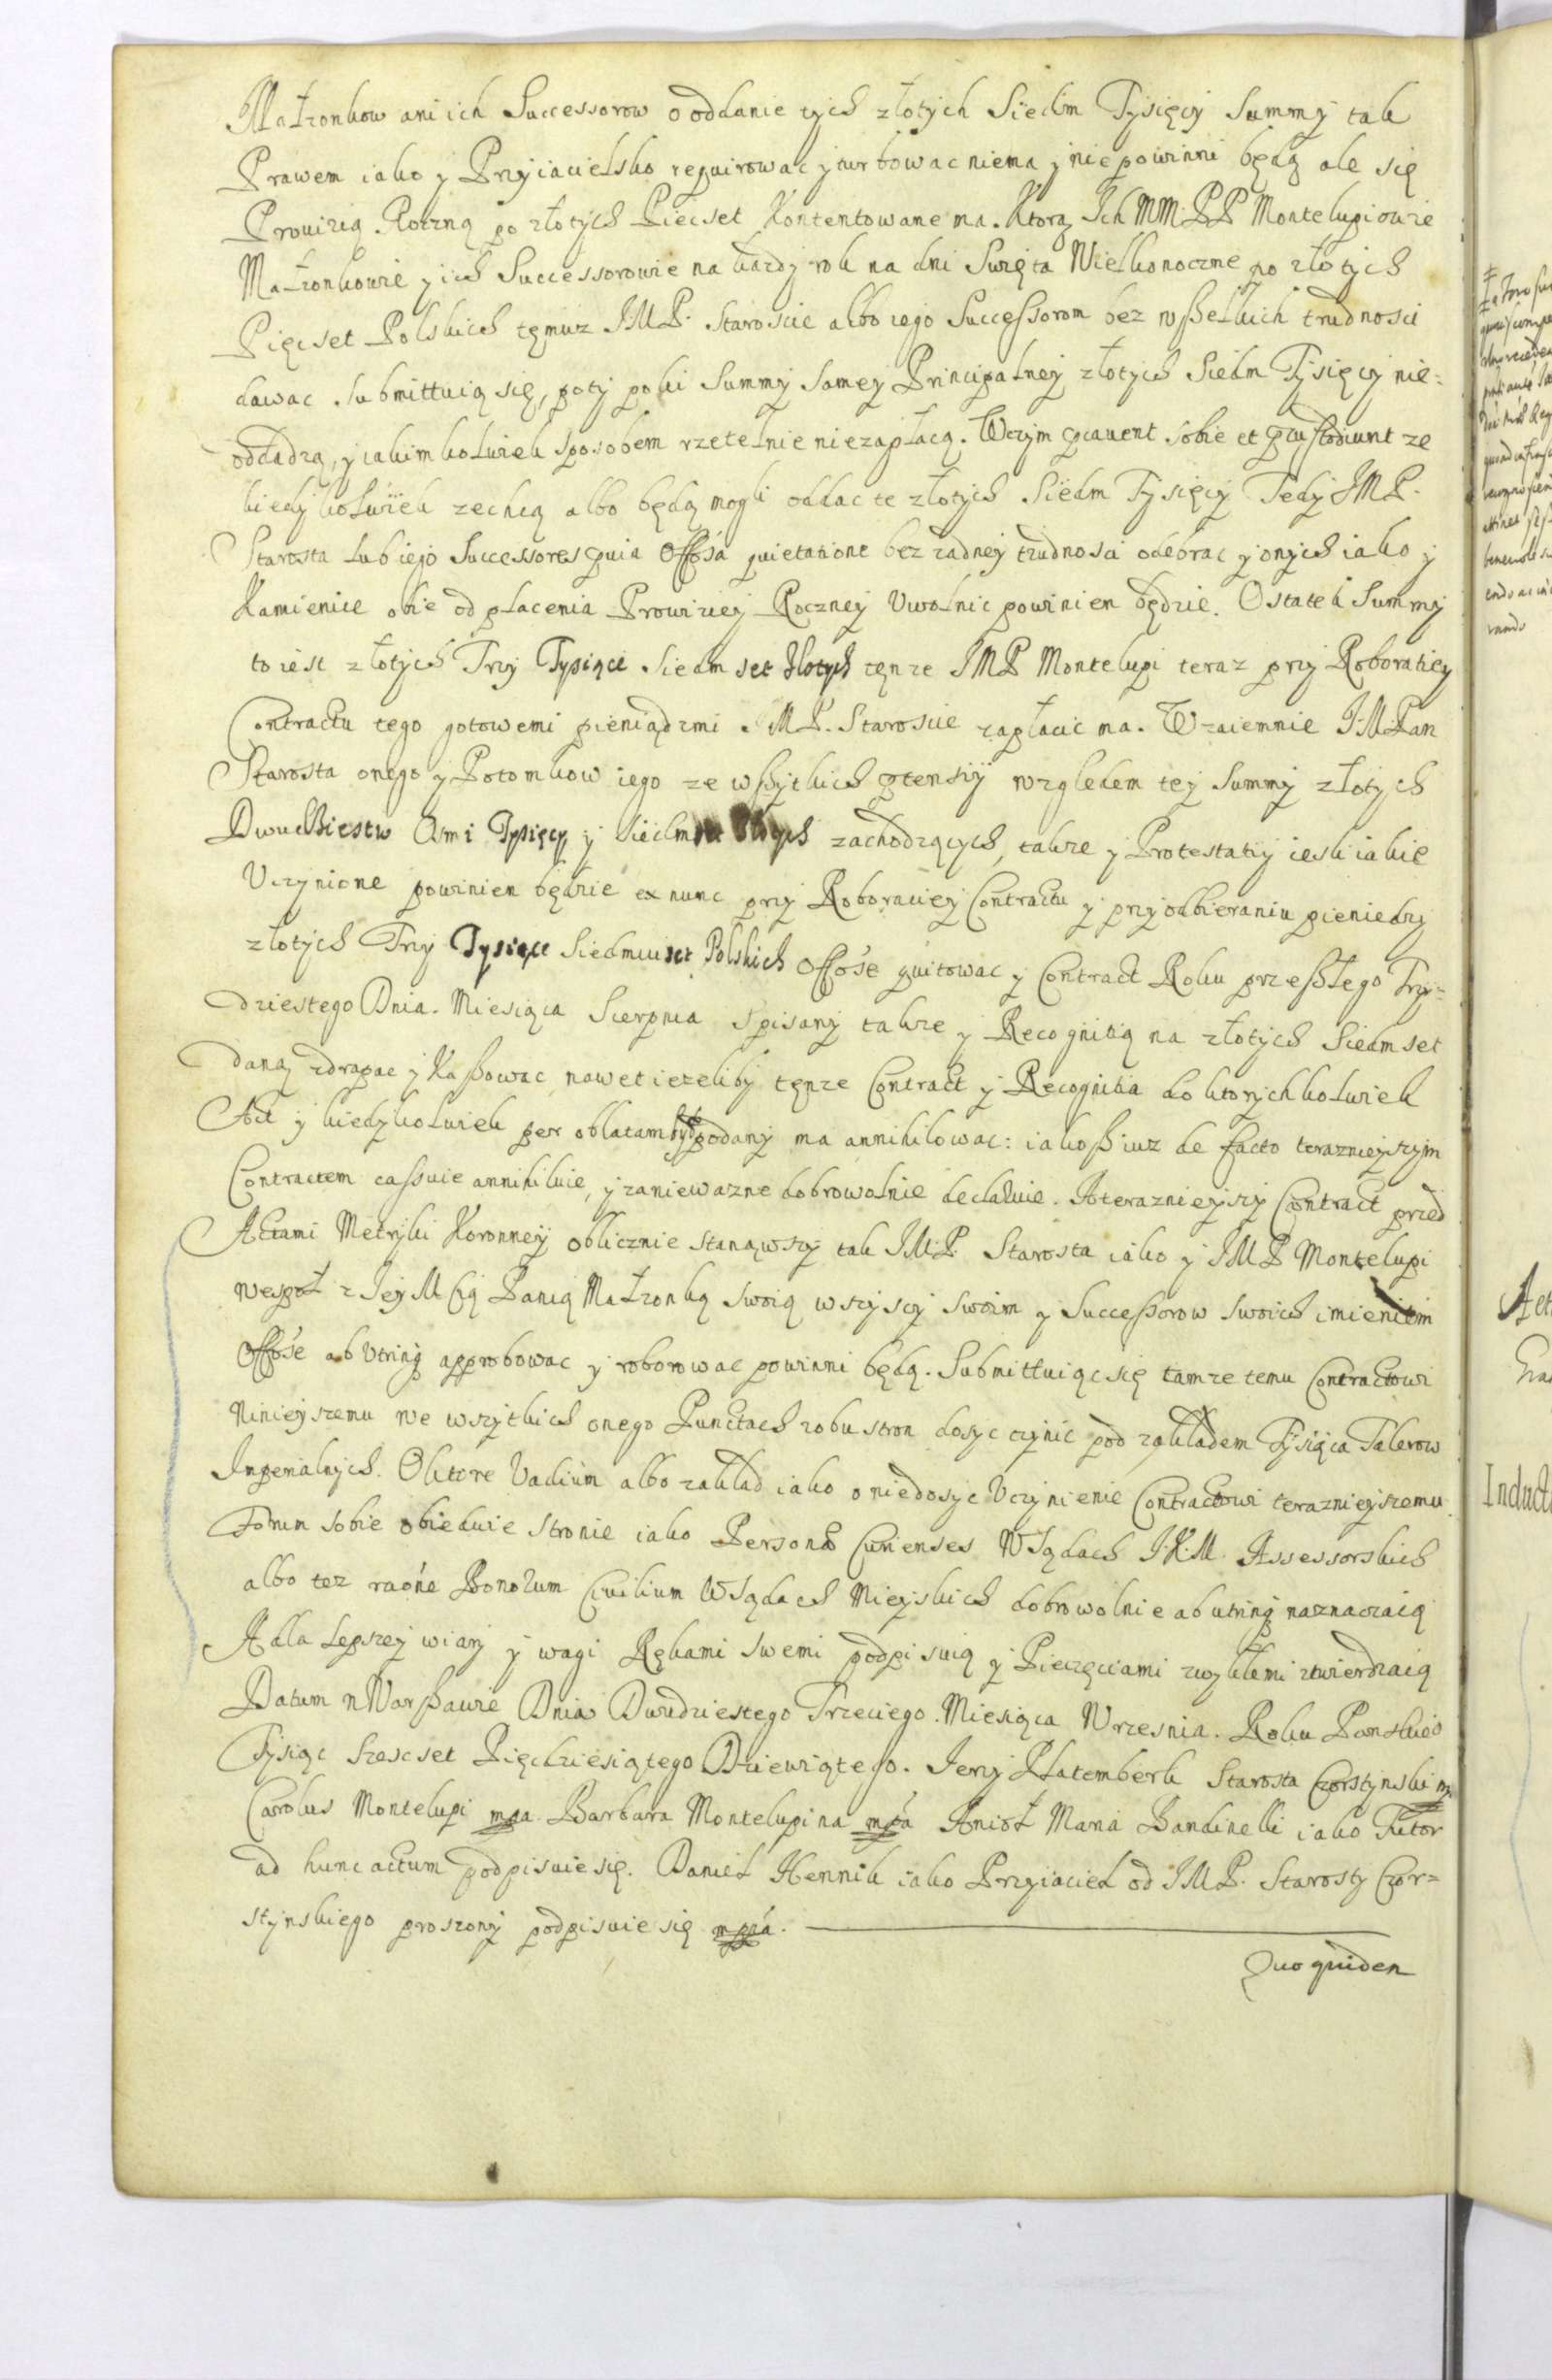 Małzonkow ani ich Successorow o oddanie tych złotych Siedm Tysięcy Summy tak
Prawem iako y Przyiacielsko requirowac y turbowac niema y nie powinni będą ale się
Prowizią Roczną po złotych Piecset Kontentowane ma. Ktorą Ich MM. PP Montelupiowie
Małzonkowie y ich Successorowie na kazdy rok na dni Swięta Wielkonoczne po złotych
Pięcset Polskich tęmuz JMP. Staroscie albo iego Successorom bez wszelkich trudnosci
dawac submittuią się, poty poki Summy samey Principalney złotych Siedm Tysięcy nie=
oddadzą, y iakimkolwiek sposobem rzetelnie niezapłacą. Wczym pcavent sobie et pcustodiunt ze
kiedykolwiek zechcą albo będą mogli oddac te złotych Siedm Tysięcy Tedy JMP.
Starosta lub iego Successores quia Offosa quietatione bez zadney trudnosci odebrac y onych iako y
Kamienice obie od płacenia Prowiziey Roczney Uwolnic powinien będzie. Ostatek Summy
to iest złotych Trzy Tysiące Siedm set złotych tęnze JMP Montelupi teraz przy Roboratiey
Contractu tego gotowemi pieniądzmi JMP. Staroscie zapłacic ma. Wzaiemnie J.M.Pan
Starosta onego y Potomkow iego ze wszytkich ptensiy względem tey Summy złotych
Dwudziestu Osmi Tysięcy y Siedm set złotych zachodzących, takze y Protestatiy iesli iakie
Uczynione powinien będzie ex nunc przy Roboraciey Contractu y przy odbieraniu pieniedzy
złotych Trzy Tysiące Siedmiuset Polskich Offose quitowac y Contract Roku przeszłego Trzy=
dziestego Dnia Miesiąca Sierpnia spisany takze y Recognitią na złotych Siedm set
daną zdrapac y kassowac, nawet iezeliby tęnze Contract y Recognitia do ktorychkolwiek
Act y kiedykolwiek per oblatam był podany ma annihilowac: iakosz iuz de facto teraznieyszym
Contractem cassuie annihiluie, y zaniewazne dobrowolnie declaruie. A teraznieyszy Contract przed
Actami Metryki Koronney oblicznie stanąwszy tak JM.P. Starosta iako y JMP Montelupi
wespoł z Jey Mcią Panią Małzonką swoią wszyscy swoim y Successorow swoich imieniem
Offose ab utrinq approbowac y roborowac powinni będą. Submittuiąc się tamze temu Contractowi
Ninieyszemu we wszytkich onego Punctach z obu stron dosyc czynic pod zakładem Tysiąca Talerow
Imperialnych. O ktore Vadium albo zakład iako o niedosyc Uczynienie Contractowi teraznieyszemu
Forum sobie obiedwie stronie iako Personæ Curienses W Sądach J.K.M. Assessorskich
albo tez raóne Bonorum Civilium W Sądach Mieyskich dobrowolnie ab utrinq naznaczaią
A dla lepszey wiary y wagi Rękami swemi podpisuią y Pieczęciami zwykłemi ztwierdzaią
Datum w Warszawie Dnia Dwudziestego Trzeciego Miesiąca Wrzesnia. Roku Panskie°
Tysiąc Szescset Pięcdziesiątego Dziewiątego. Jerzy Platemberk Starosta Czorstynski mp.
Carolus Montelupi mpa Barbara Montelupina mpa Anioł Maria Bandinelli iako Tutor
ad hunc actum podpisuie się. Daniel Hennik iako Przyiaciel od JMP. Starosty Czor=
stynskiego proszony podpisuie się mpa.
Quo quidem